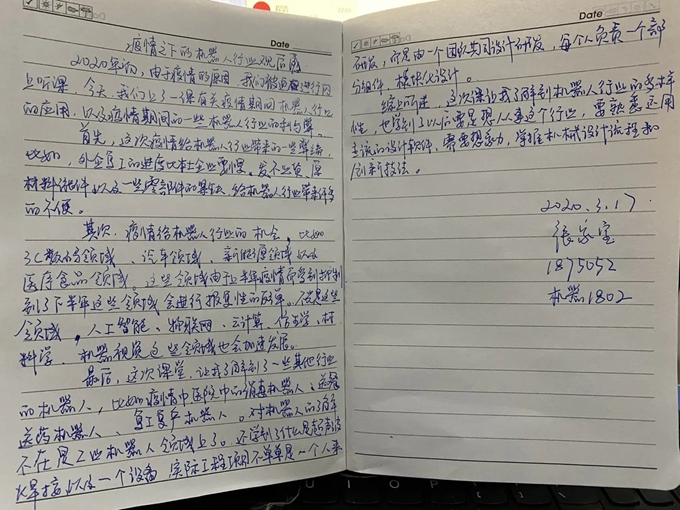 Date
疫情之下的机器人行业观后感
2020年初，由于疫情的原因，我们被迫进行网
上听课，今天，我们上了一课有关疫情期间机器人行业
的应用，以及疫情期间的一些机器人行业的利与弊。
首先，这次疫情给机器人行业带来的一些弊端，
比如，外企复工的进度比本土企业要慢。发不出货，原
材料很件以及一些零部件的紧缺，给机器人行业带来许多
的不便。
其次，疫情给机器人行业的机会，比如
3C数码领域、汽车领域、新能源领域以及
医疗食品领域。这些领域由于上半年疫情而受到抑制
到了下半年这些领域会进行报复性的反弹。不仅是这些
领域，人工智能、物联网、云计算、仿生学、材
料学、机器视觉这些领域也会加速发展。
最后，这次课堂，让我了解到了一些其他行业
的机器人，比如疫情中医院中的消毒机器人、送餐
送药机器人、复工复产机器人。对机器人的了解
不在是工业机器人领域上了。还学到了什么是超声波
焊接以及一个设备，实际工程项目不单单是一个人来
Date
研发，而是由一个团队共同设计研发，每个人负责一个部
分组件，模块化设计。
综上所述，这次课让我了解到机器人行业的多样
性，也学到了以后要是想入手这个行业，要熟悉运用
主流的设计软件，需要想象力，掌握机械设计流程和
创新技法。
2020.3.17
张家宝
1875052
机器1802